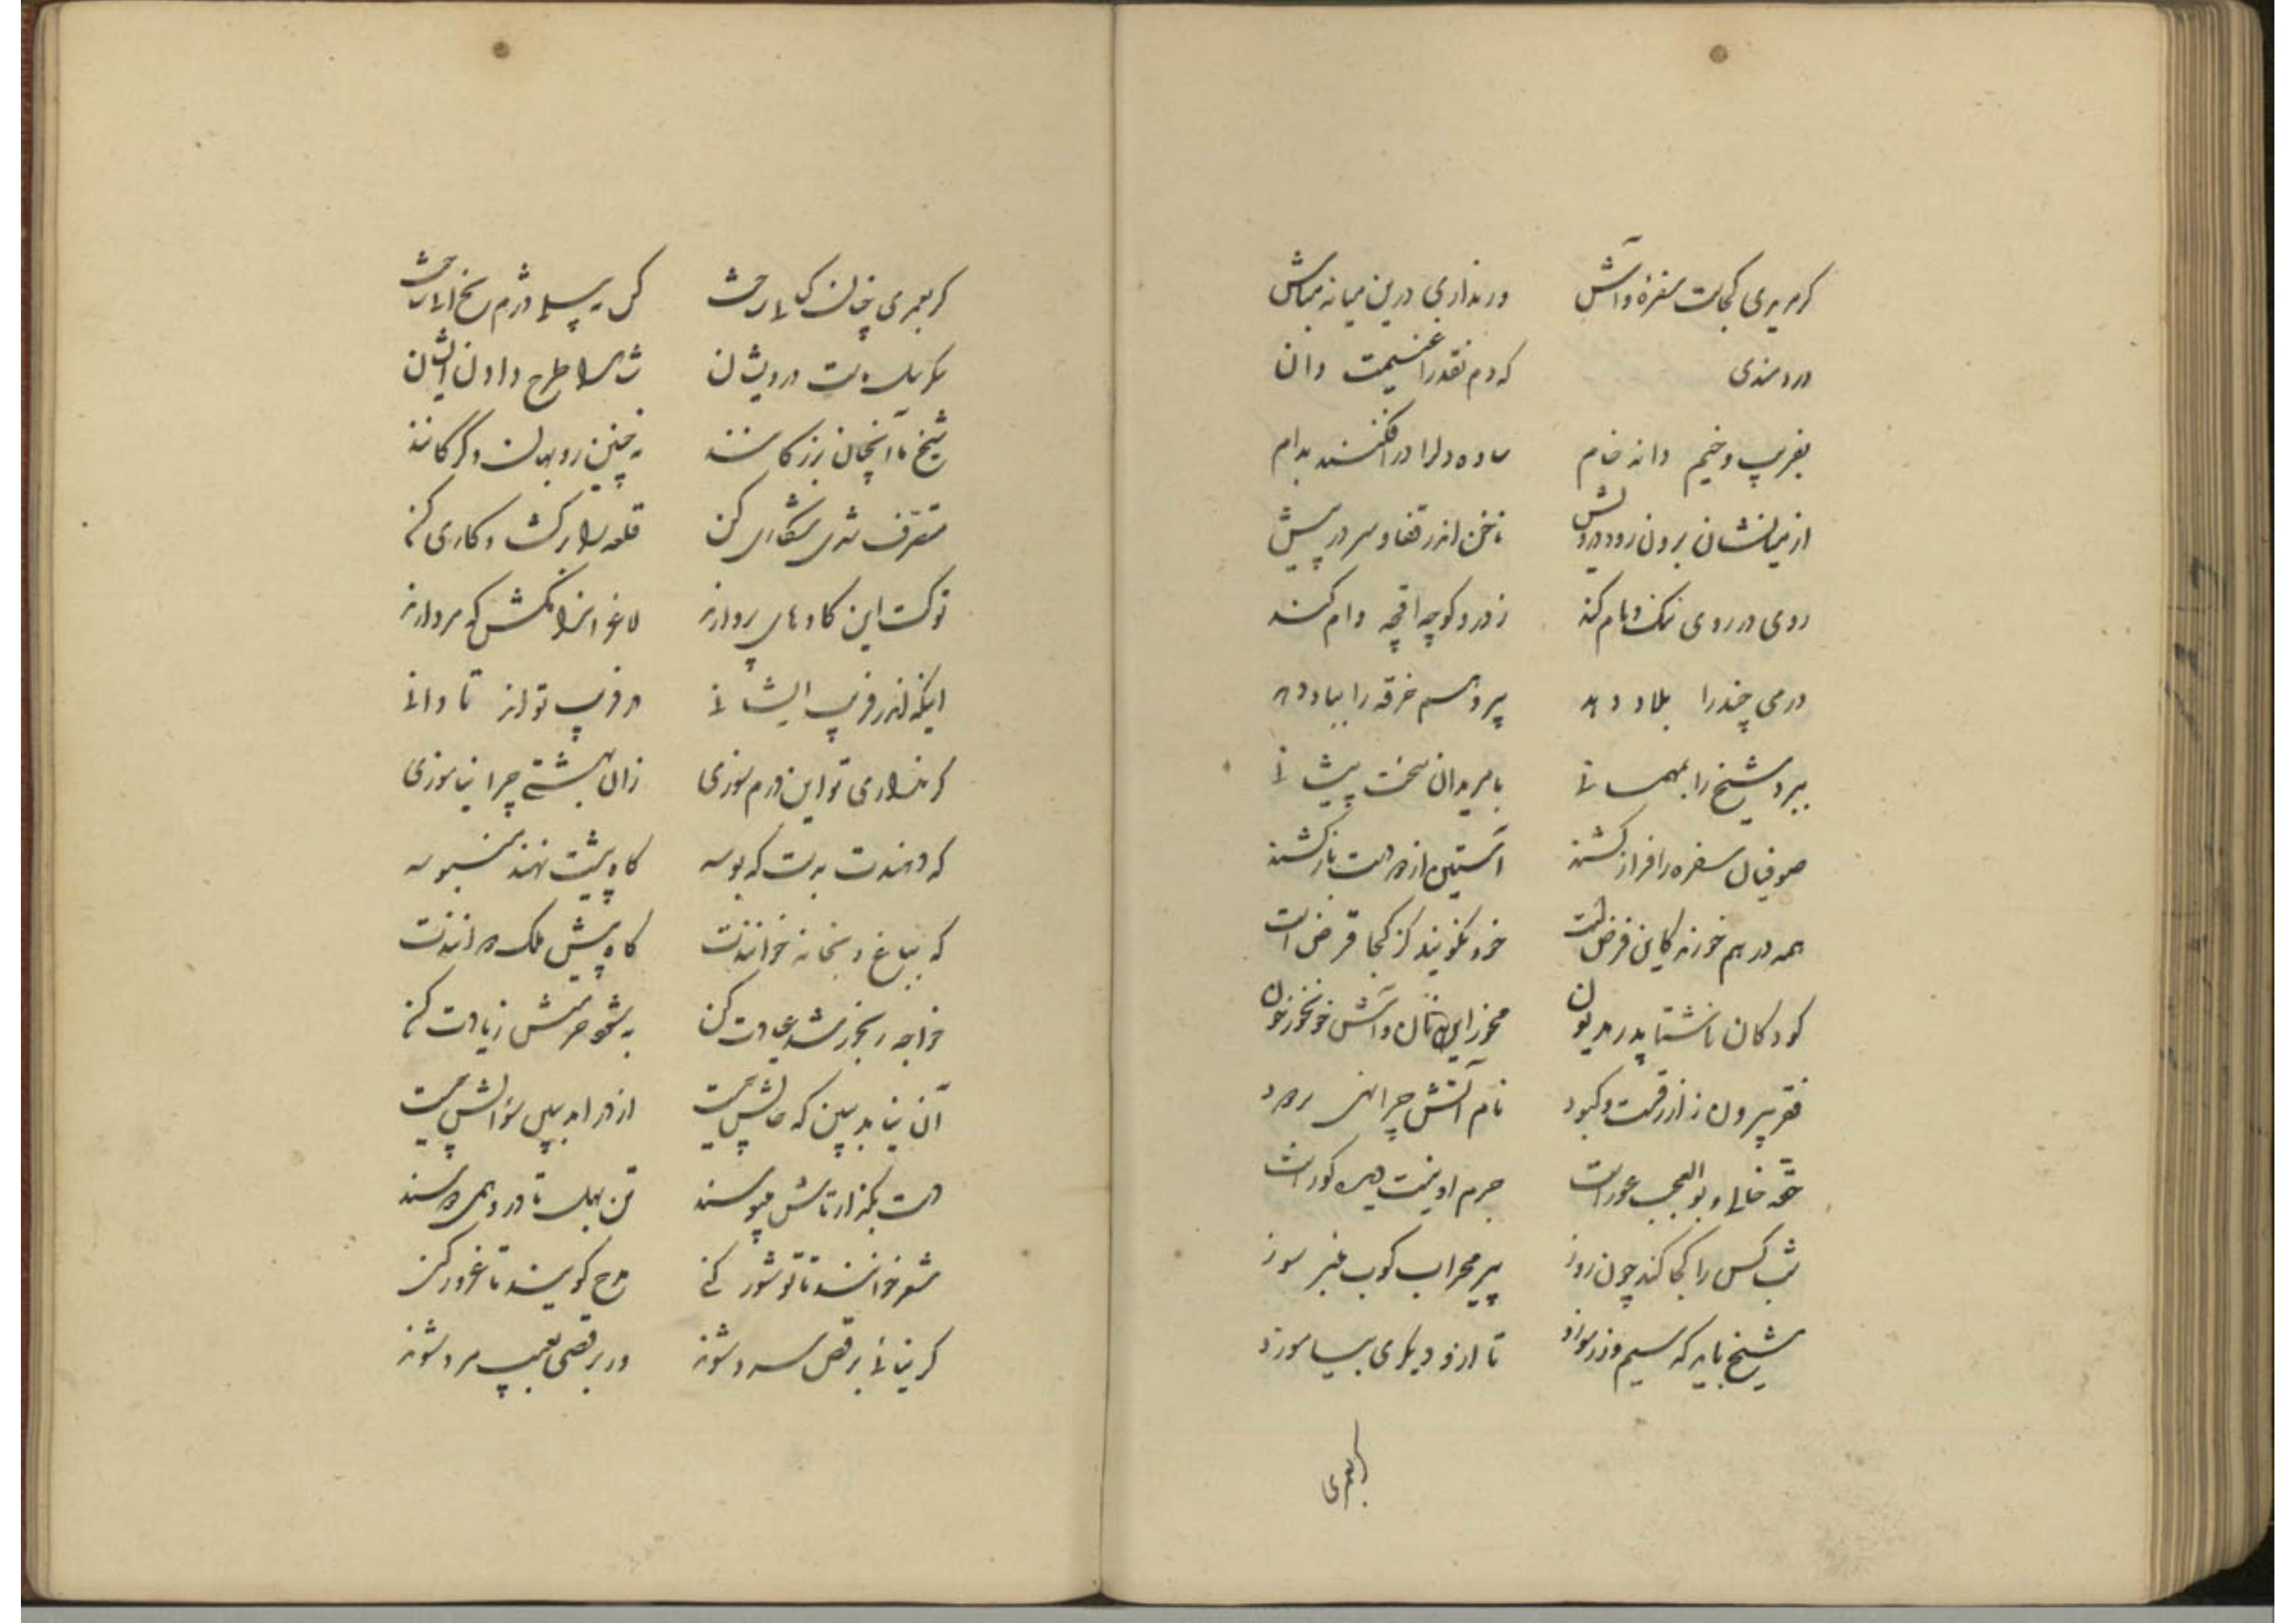 کر مریدی کجاست سفره و آش ورنداری درین میانه مباش
دردمندی که دم نقد را غنیمت دان
بفریب و خیم دانه خام ساده دلرا درافکنند بدام
از میانشان برون رود درویش ناخن اندر قفا و سر در پیش
روی در روی ننک و نام کند زدر و کوچه اقچه وام کند
درمی چند را بلا دهد پیرهم خرقه را بباد دهد
ببرد شیخ را بمهمانی با مریدان سخت پیشانی
صوفیان سفره را فراز کشند آستین از دست باز کشند
همه درهم خورند کاین فرض است خود نکویند کز کجا قرض است
کودکان ناشتا پدر مدیون مخور این نان و آش خونخور خون
فقر بیرون ز ازرقست و کبود نام آتش چرا نهی بر دود
حقه خالی و بوالعجب عورست جرم او نیست دیده کورست
شب کس را کجا کند چون روز پیر محراب کوب منبر سوز
شیخ باید که سیم و زر سوزد تا ازو دیکری بیاموزد
بعمری
کر بعمری چنان
درویشان را طرح دادن ایشان
شیخ ما آنچنان بزرکانند چنین روبهان و کرکانند
متصرف شدی شکاری کن قلعه را کشت و کاری کن
توکت این کاوهای پروارند لاغرانرا مکش که مردارند
ایکه اندر فریب ایشانی در فریب تو اند تا دانی
کر نداری تو این درم سوزی زان بهشتی چرا نیاموزی
که دهندت بدست که بوسه کاه پیشت نهند سنبوسه
که بباغ و بخانه خوانندت کاه پیش ملک دوانندت
خواجه رنجور شد عیادت کن حرمتش زیادت کن
آن نیاید ببین که حالش چیست از در آمد ببین سؤالش چیست
دست بکذار تاش میبوسند تن بهل تا درو همی
شعر خوانند تا تو شور کنی مدح کویند تا غرور کنی
کر نیائی برقص سرد شوند ور برقصی بعیب مرد شوند